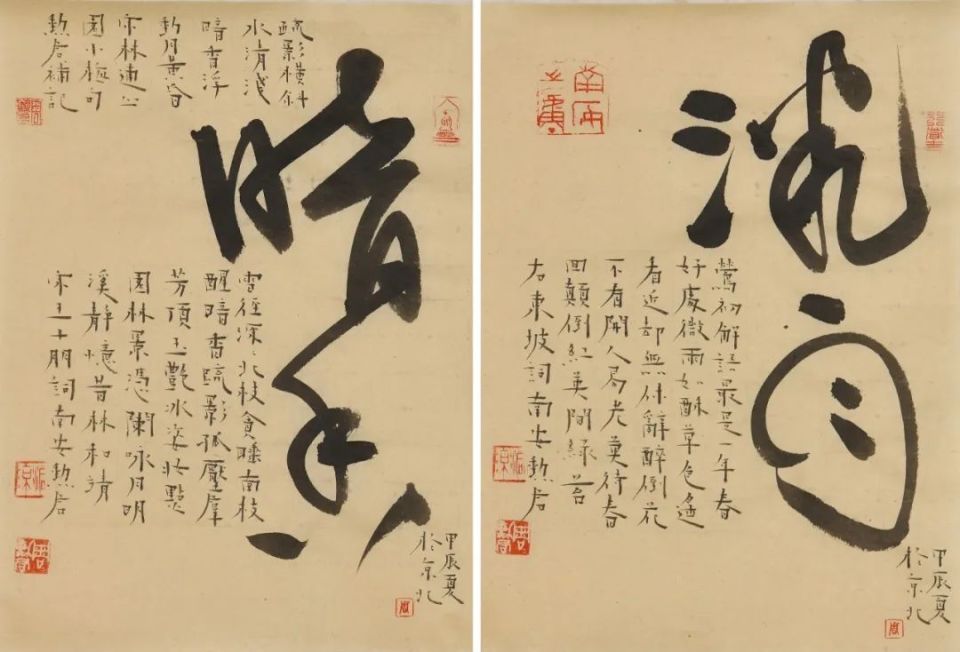 暗香
疏影橫斜
水清淺
暗香浮
動月黃昏
宋林逋山
園小梅句
勲君補記
雪徑深〻北枝貪睡南枝
醒暗香疏影孤壓羣
芳頂玉艷冰姿妝點
園林景憑闌咏月明
溪靜憶昔林和靖
宋王十朋詞南安勲君
甲辰夏
於京北
雨
鶯初解語最是一年春
好處微雨如酥草色遙
看近却無休辭醉倒花
不看開人易老莫待春
回顛倒紅英間緑苔
右東坡詞南安勲君
甲辰夏
於京北